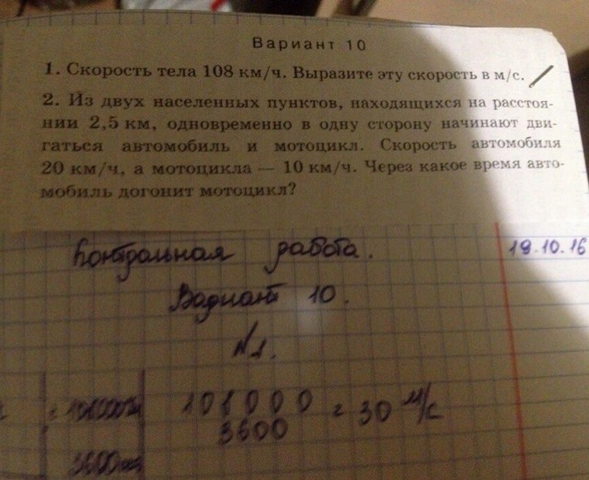 Вариант 10
1. Скорость тела 108 км/ч. Выразите эту скорость в м/с.
2. Из двух населенных пунктов, находящихся на расстоя-
нии 2,5 км, одновременно в одну сторону начинают дви-
гаться автомобиль и мотоцикл. Скорость автомобиля
20 км/ч, а мотоцикла — 10 км/ч. Через какое время авто-
мобиль догонит мотоцикл?
Контрольная работа. 19.10.16
Вариант 10.
№1.
108000 = 30 м/с
3600